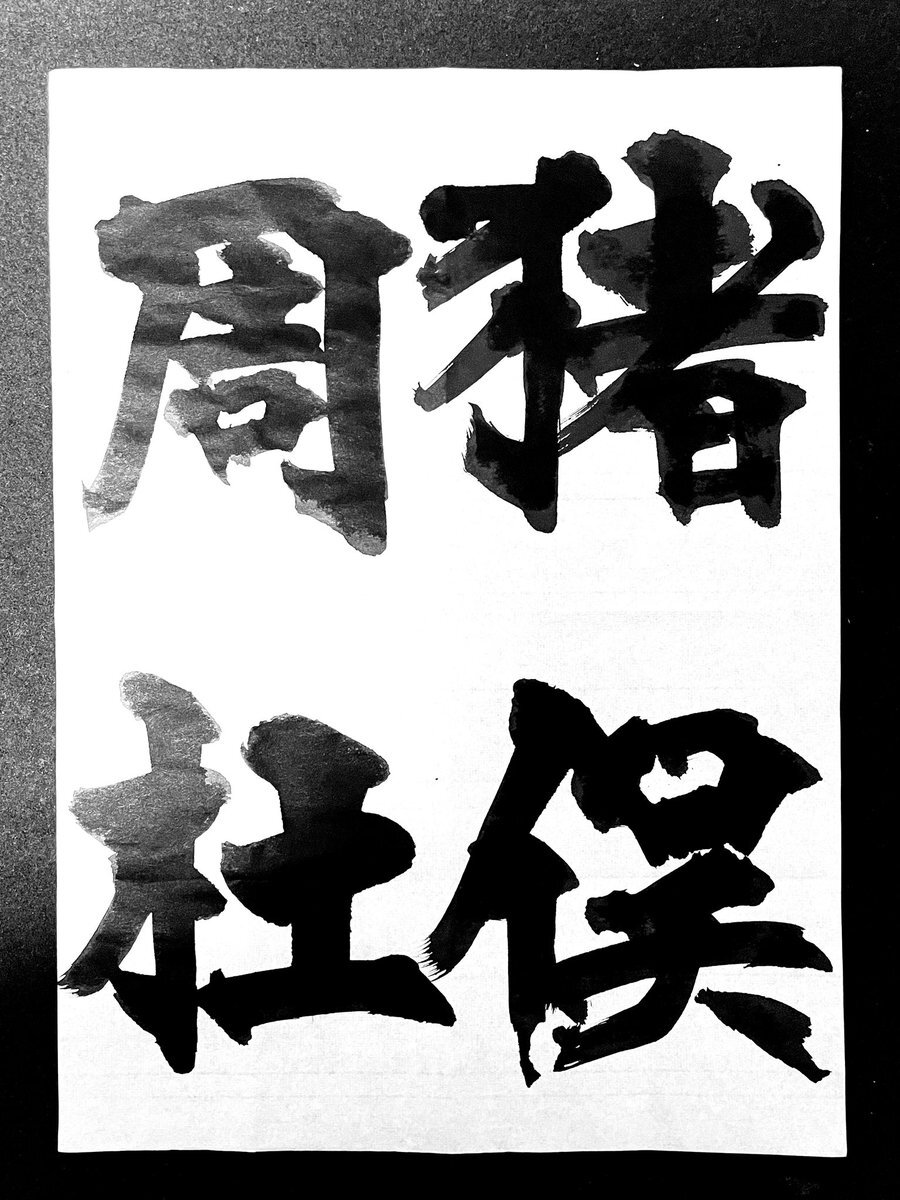 猪俣
周杜